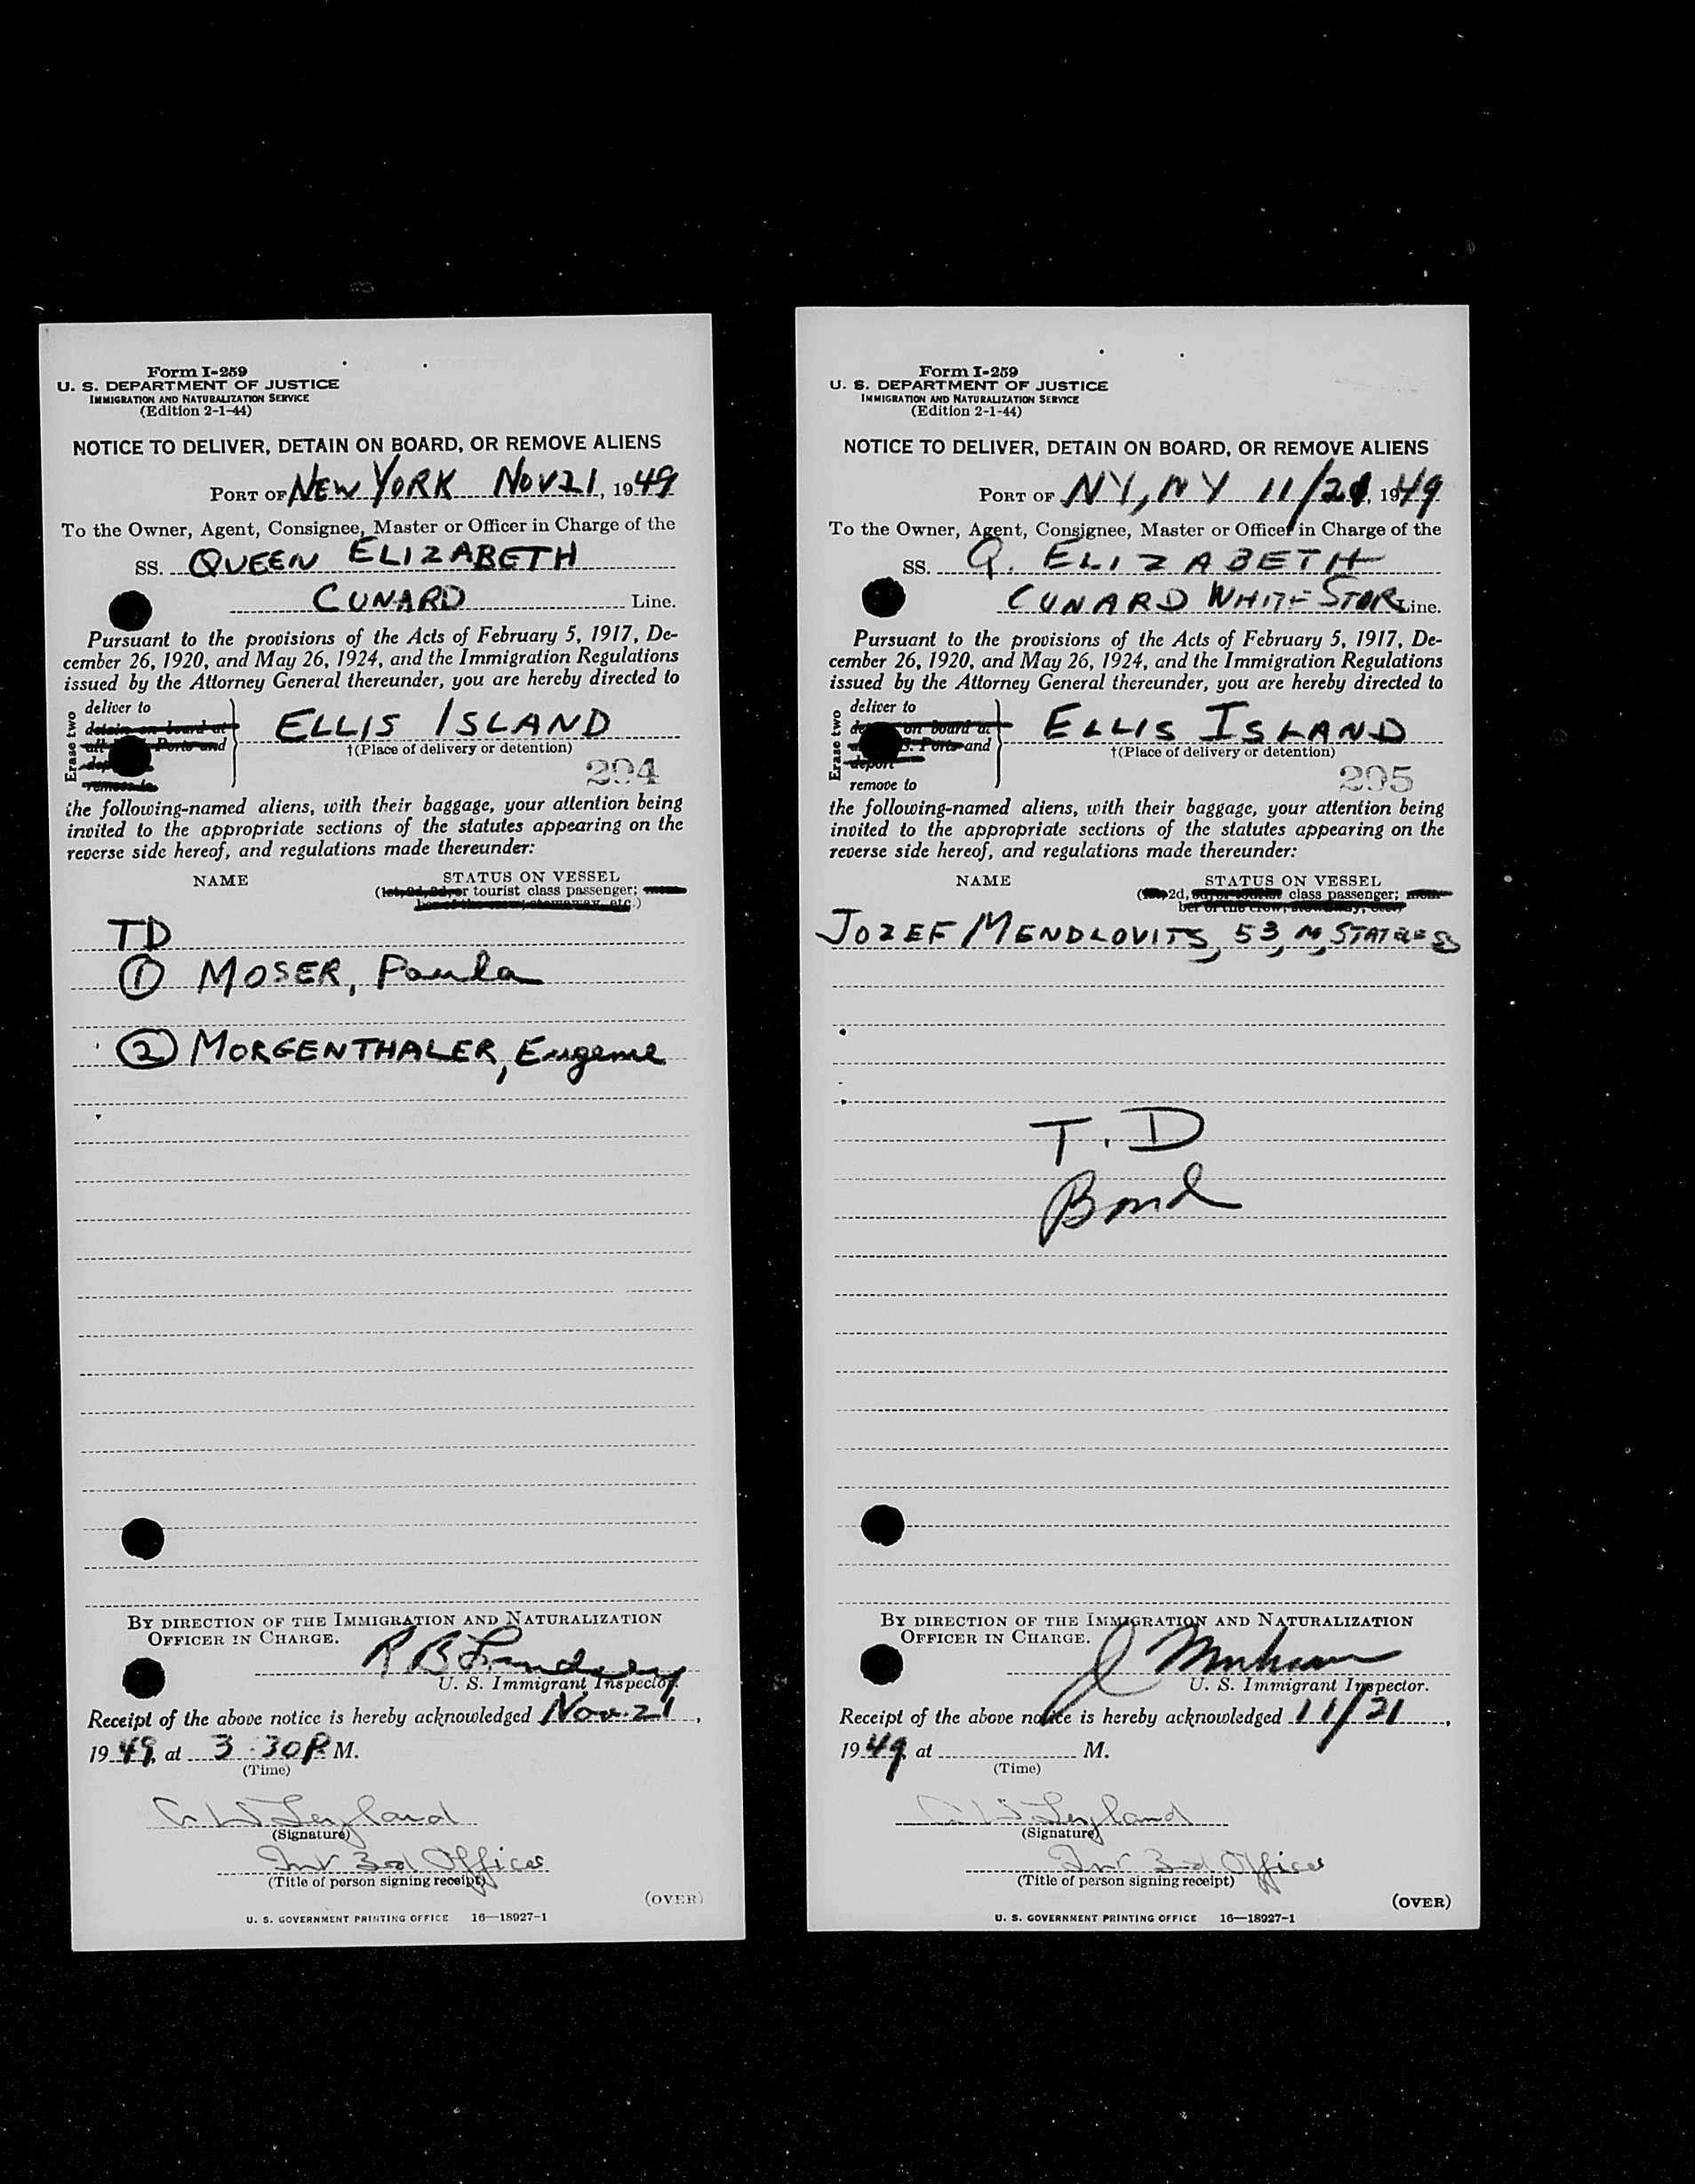 Form I-259
U. S. DEPARTMENT OF JUSTICE
IMMIGRATION AND NATURALIZATION SERVICE
(Edition 2-1-44)
NOTICE TO DELIVER, DETAIN ON BOARD, OR REMOVE ALIENS
PORT OF NEW YORK NOV 21, 1949
To the Owner, Agent, Consignee, Master or Officer in Charge of the
SS. QUEEN ELIZABETH
CUNARD Line.
Pursuant to the provisions of the Acts of February 5, 1917, De-
cember 26, 1920, and May 26, 1924, and the Immigration Regulations
issued by the Attorney General thereunder, you are hereby directed to
Erase two
deliver to
detain on board at
all Ports and
remove to
ELLIS ISLAND
†(Place of delivery or detention)
294
the following-named aliens, with their baggage, your attention being
invited to the appropriate sections of the statutes appearing on the
reverse side hereof, and regulations made thereunder:
NAME STATUS ON VESSEL
(1st, 2d, 3d, or tourist class passenger; mem-
ber of the crew, stowaway, etc.)
TD
① MOSER, Paula
② MORGENTHALER, Eugene
BY DIRECTION OF THE IMMIGRATION AND NATURALIZATION
OFFICER IN CHARGE.
R B Lindsey
U. S. Immigrant Inspector.
Receipt of the above notice is hereby acknowledged Nov. 21,
1949, at 3:30 P. M.
(Time)
Leyland
(Signature)
Int 3rd Officer
(Title of person signing receipt)
(OVER)
U. S. GOVERNMENT PRINTING OFFICE 16—18927-1
Form I-259
U. S. DEPARTMENT OF JUSTICE
IMMIGRATION AND NATURALIZATION SERVICE
(Edition 2-1-44)
NOTICE TO DELIVER, DETAIN ON BOARD, OR REMOVE ALIENS
PORT OF NY, NY 11/21, 1949
To the Owner, Agent, Consignee, Master or Officer in Charge of the
SS. Q. ELIZABETH
CUNARD WHITE STAR Line.
Pursuant to the provisions of the Acts of February 5, 1917, De-
cember 26, 1920, and May 26, 1924, and the Immigration Regulations
issued by the Attorney General thereunder, you are hereby directed to
Erase two
deliver to
on board at
S. Ports and
deport
remove to
ELLIS ISLAND
†(Place of delivery or detention)
295
the following-named aliens, with their baggage, your attention being
invited to the appropriate sections of the statutes appearing on the
reverse side hereof, and regulations made thereunder:
NAME STATUS ON VESSEL
(1st, 2d, 3d, or tourist class passenger; mem-
ber of the crew, stowaway, etc.)
JOZEF MENDLOVITS, 53, M, STATELESS
T. D
Bond
BY DIRECTION OF THE IMMIGRATION AND NATURALIZATION
OFFICER IN CHARGE.
U. S. Immigrant Inspector.
Receipt of the above notice is hereby acknowledged 11/21,
1949, at M.
(Time)
Leyland
(Signature)
Int 3rd Officer
(Title of person signing receipt)
(OVER)
U. S. GOVERNMENT PRINTING OFFICE 16—18927-1